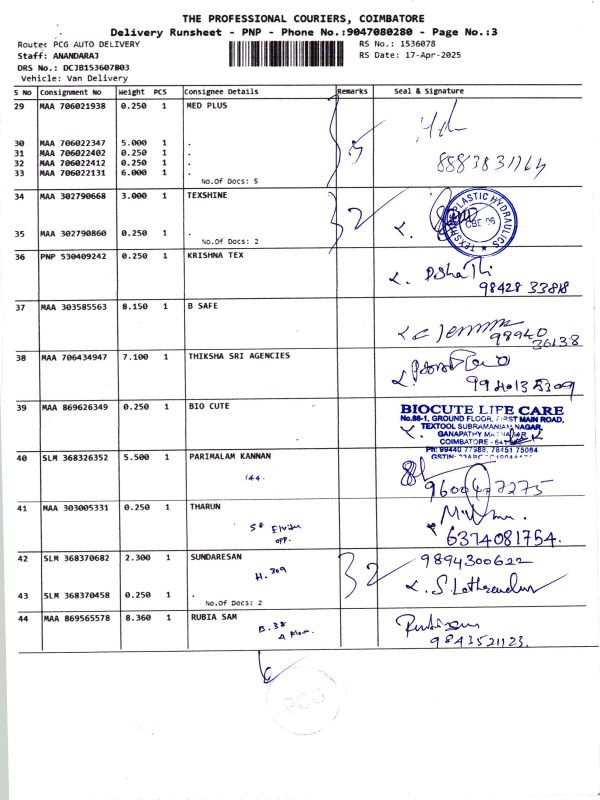 THE PROFESSIONAL COURIERS, COIMBATORE
Delivery Runsheet - PNP - Phone No.:9047080280 - Page No.:3
Route: PCG AUTO DELIVERY
RS No.: 1536078
Staff: ANANDARAJ
RS Date: 17-Apr-2025
DRS No.: DCJB153607803
Vehicle: Van Delivery
S No Consignment No Weight PCS Consignee Details Remarks Seal & Signature
29 MAA 706021938 0.250 1 MED PLUS
30 MAA 706022347 5.000 1 .
31 MAA 706022402 0.250 1 .
32 MAA 706022412 0.250 1 .
33 MAA 706022131 6.000 1 .
No.Of Docs: 5
5
8883831164
34 MAA 302790668 3.000 1 TEXSHINE
2
TEXSHINE PLASTIC HYDRAULICS
CBE-06
35 MAA 302790860 0.250 1 .
No.Of Docs: 2
36 PNP 530409242 0.250 1 KRISHNA TEX
98428 33818
37 MAA 303585563 8.150 1 B SAFE
98940
36138
38 MAA 706434947 7.100 1 THIKSHA SRI AGENCIES
39 MAA 869626349 0.250 1 BIO CUTE
BIOCUTE LIFE CARE
No.88-1, GROUND FLOOR, FIRST MAIN ROAD,
TEXTOOL SUBRAMANIAM NAGAR,
GANAPATHY
COIMBATORE
Ph: 99440 77988, 78451 75084
40 SLM 368326352 5.500 1 PARIMALAM KANNAN
144.
41 MAA 303005331 0.250 1 THARUN
opp.
6374081754.
42 SLM 368370682 2.300 1 SUNDARESAN
H. 309
2
9894300622
43 SLM 368370458 0.250 1 .
No.Of Docs: 2
44 MAA 869565578 8.360 1 RUBIA SAM
B.38
4 Floor.
9843521123.
6
PCG